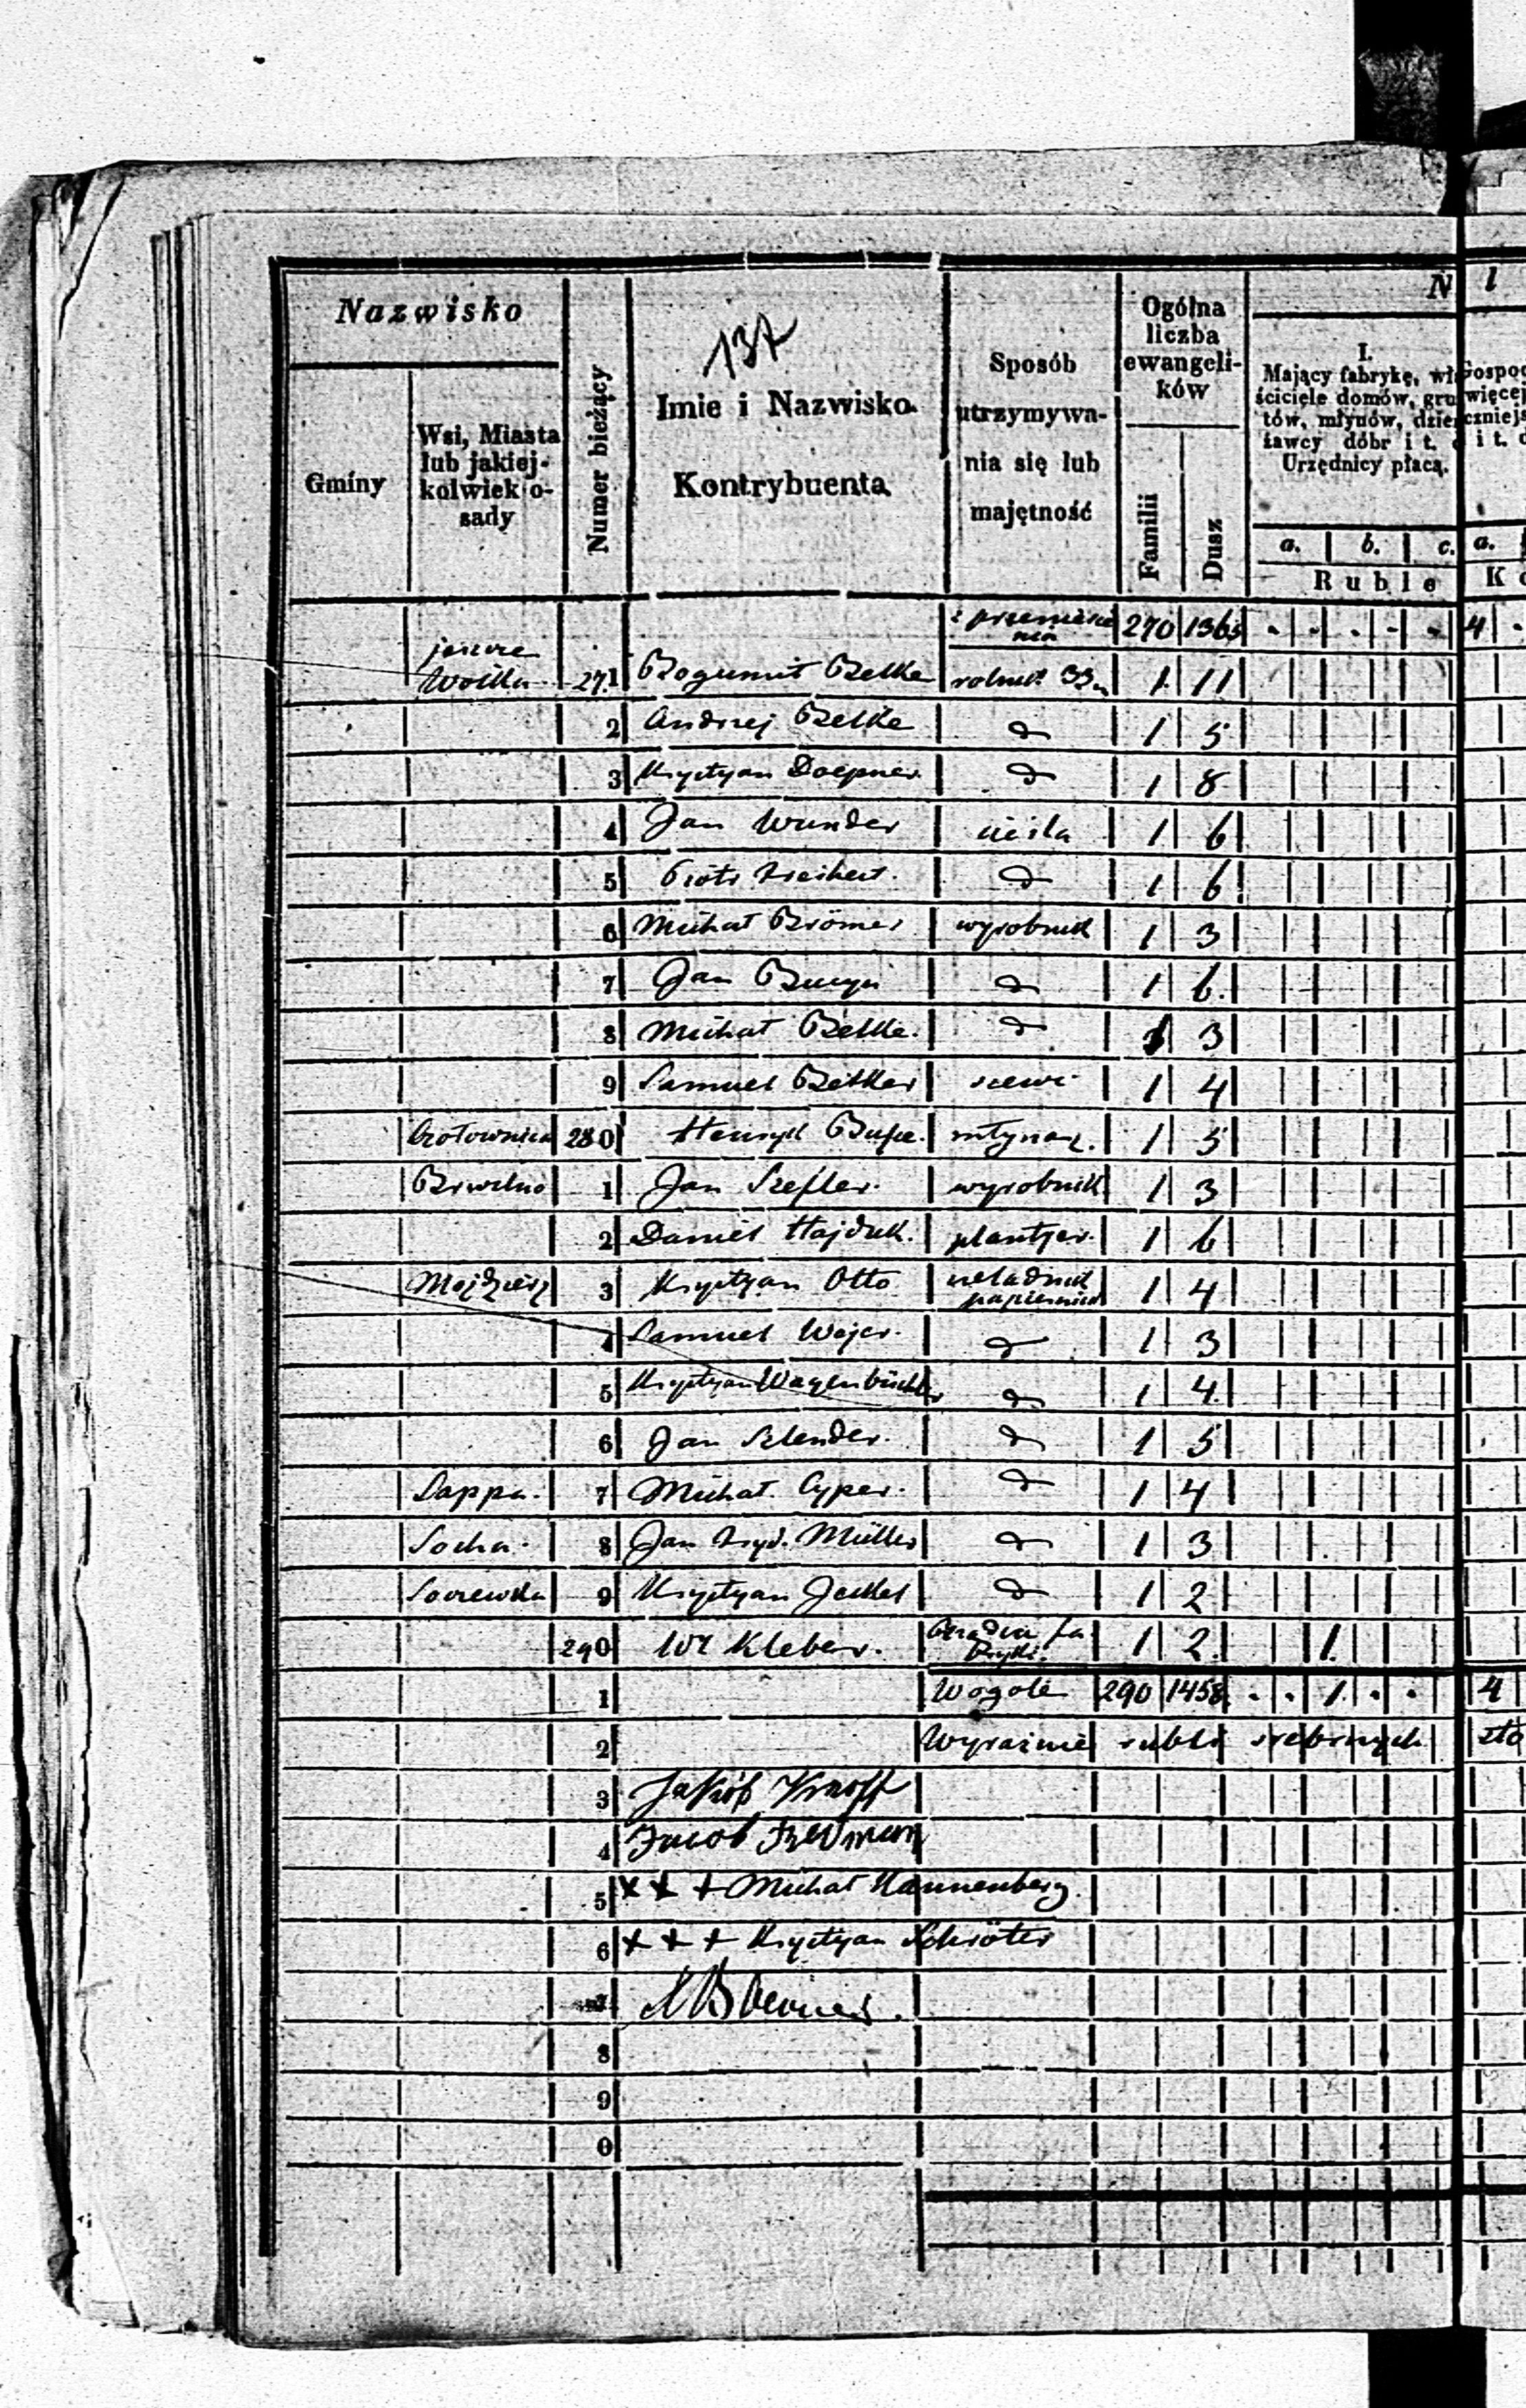 Nazwisko
Gminy
Wsi, Miasta lub jakiej-kolwiek o-sady
Numer bieżący
137
Imie i Nazwisko
Kontrybuenta
Sposób utrzymywa-nia się lub majętność
Ogólna liczba ewangeli-ków
Familii
Dusz
N
I.
Mający fabrykę, wła
ściciele domów, gru
tów, młynów, dzier
żawcy dóbr i t. d
Urzędnicy płacą.
a. b. c.
Ruble
z przeniesie nia 270 1365 4
jeszcze Wolka 271 Bogumił Betke rolnik 1 11
2 Andrzej Betke d 1 5
3 Krystyan Doepner d 1 8
4 Jan Wunder cieśla 1 6
5 Piotr d 1 6
6 Michał Brömer wyrobnik 1 3
7 Jan d 1 6
8 Michał Betke d 1 3
9 Samuel Betker szewc 1 4
280 Henryk młynarz 1 5
Brwilno 1 Jan Szefler wyrobnik 1 3
2 Daniel Hajduk plantjer 1 6
3 Krystyan Otto czeladnik papiernick 1 4
4 Samuel Wejer d 1 3
5 Krystyan Wagenbüchler d 1 4
6 Jan Szlender d 1 5
Sappa 7 Michał Cyper d 1 4
Socha 8 Jan Müller d 1 3
Soczewka 9 Krystyan Jeckel d 1 2
290 Wł Kleber 1 2 1
1 Wogóle 290 1458 1 4
2 Wyraźnie rubli srebrnych
3 Jakób Knoff
4 Jacob
5 x x + Michał Hannenberg
6 + + + Krystyan Schröter
7
8
9
0